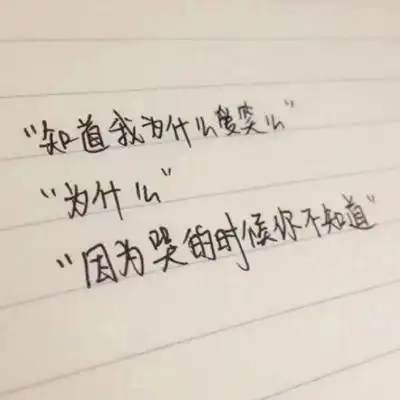 "知道我为什么爱笑么"
"为什么"
"因为哭的时候你不知道"